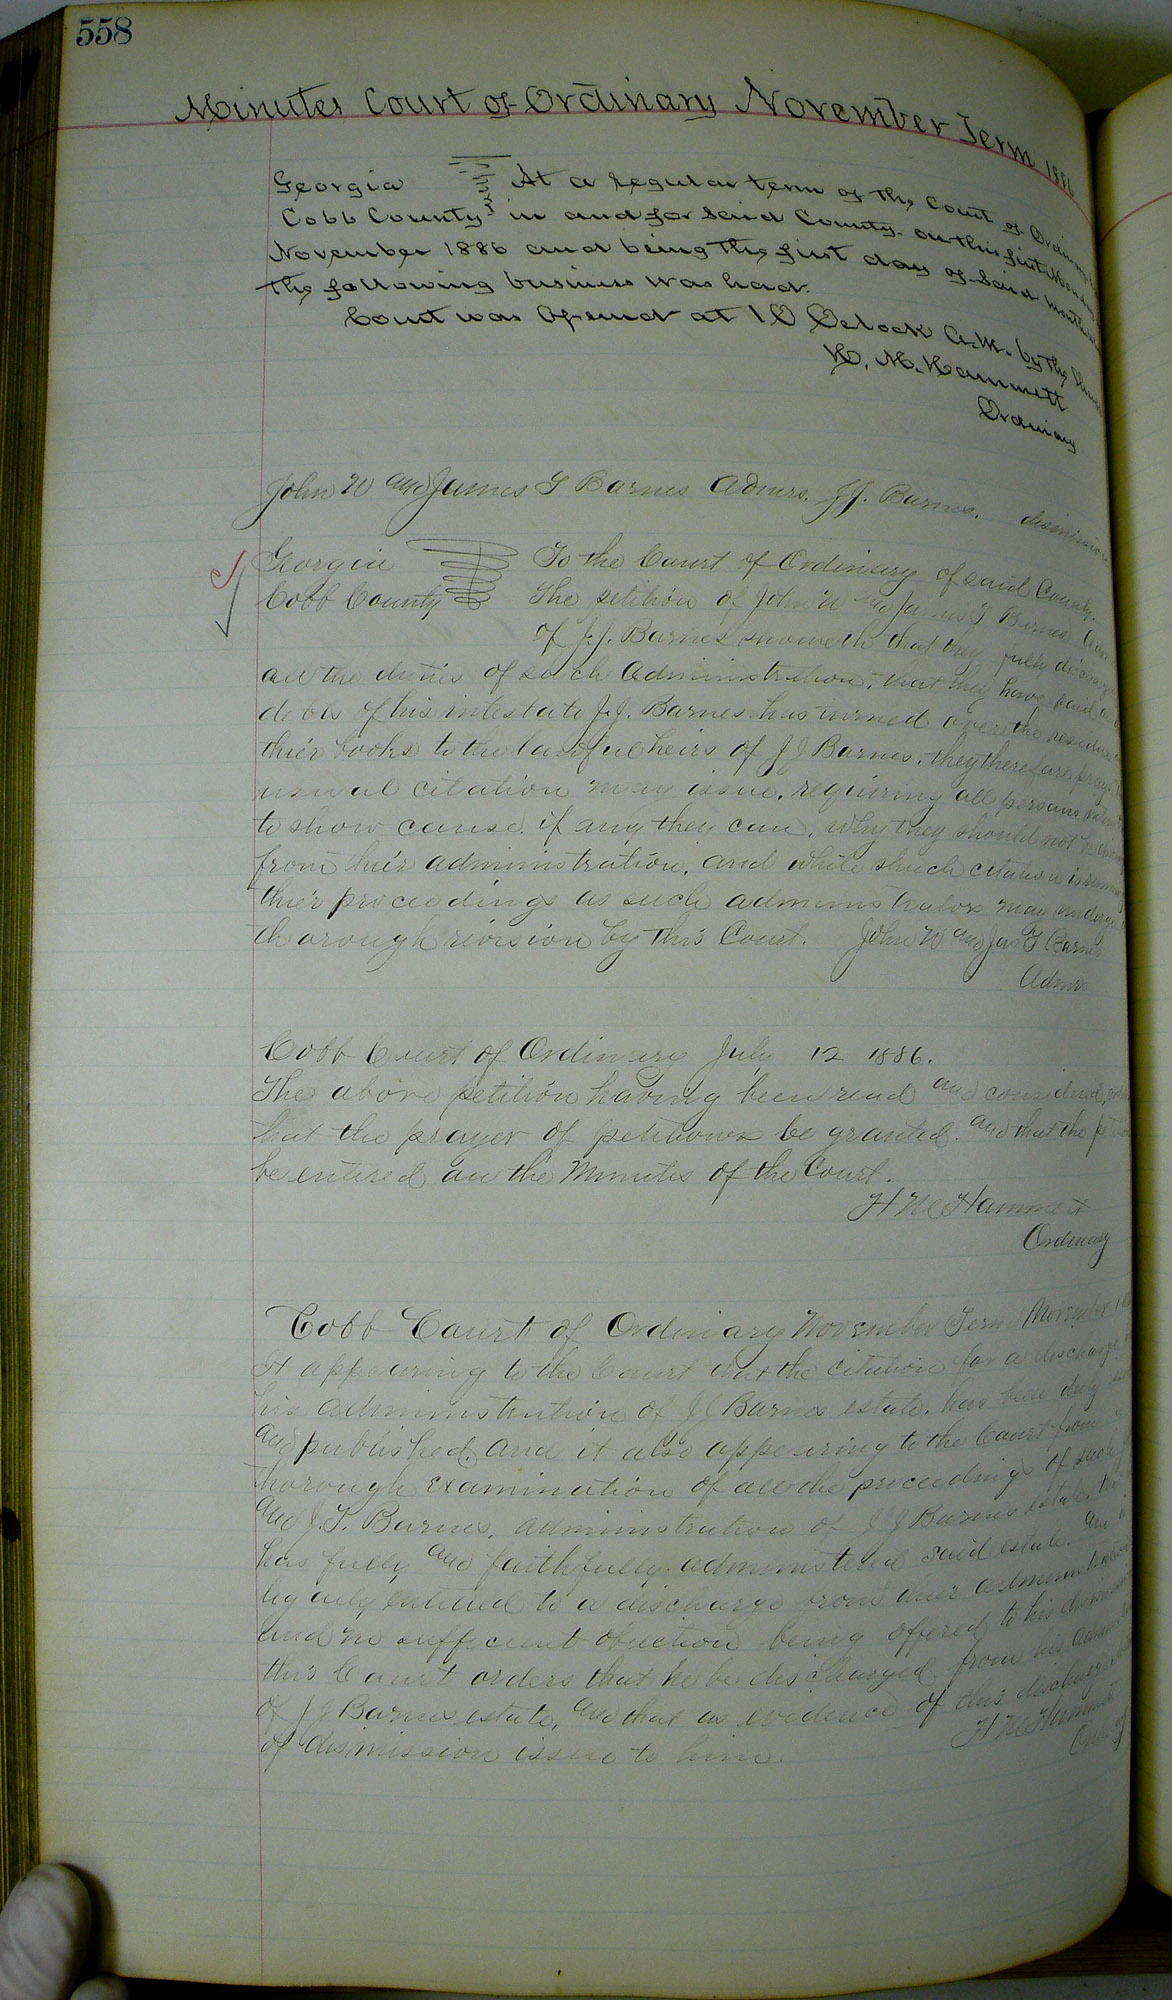 558
Minutes Court of Ordinary November Term 1886
Georgia At a regular term of the Court of Ordinary
Cobb County in and for Said County. on this first Monday
November 1886 and being the first day of Said month
the following business was had.
Court was Opened at 10 Oclock A.M. by the
H. M. Hammett
Ordinary
John W and James T Barnes Admrs. J.J. Barnes. dismission
Georgia To the Court of Ordinary of said County.
Cobb County The petition of John W and James T Barnes
of J.J. Barnes showeth that they fully
all the duties of such Administration, that they have paid
debts of his intestate J.J. Barnes has turned over the residue
thier books to the lawful heirs of J J Barnes, they therefore pray
usual citation may issue, requiring all persons
to show cause. if any they can, why they should not be
from thier administration, and while shuch citation is
thier proceedings as such administrators may undergo
thorough revision by this Court. John W and Jas T Barnes
Admrs
Cobb Court of Ordinary July 12 1886.
The above petition having been read and considered,
that the prayer of petitioners be granted. and that the
be entered on the Minutes of the Court.
H M Hammett
Ordinary
Cobb Court of Ordinary November Term November
It appearing to the Court that the citation for a discharge
his administration of J J Barnes estate. has been duly
and published. and it also appearing to the Court from
thorough examination of all the proceedings of such
and J. T. Barnes, administration of J J Barnes estate. that
has fully and faithfully administered said estate. and
legally entitled to a discharge from thier
and no sufficient objection being offered to his
this Court orders that he be discharged from his
of J J Barnes estate, and that as evidence of this discharge
of dismission issue to him. H M Hammett